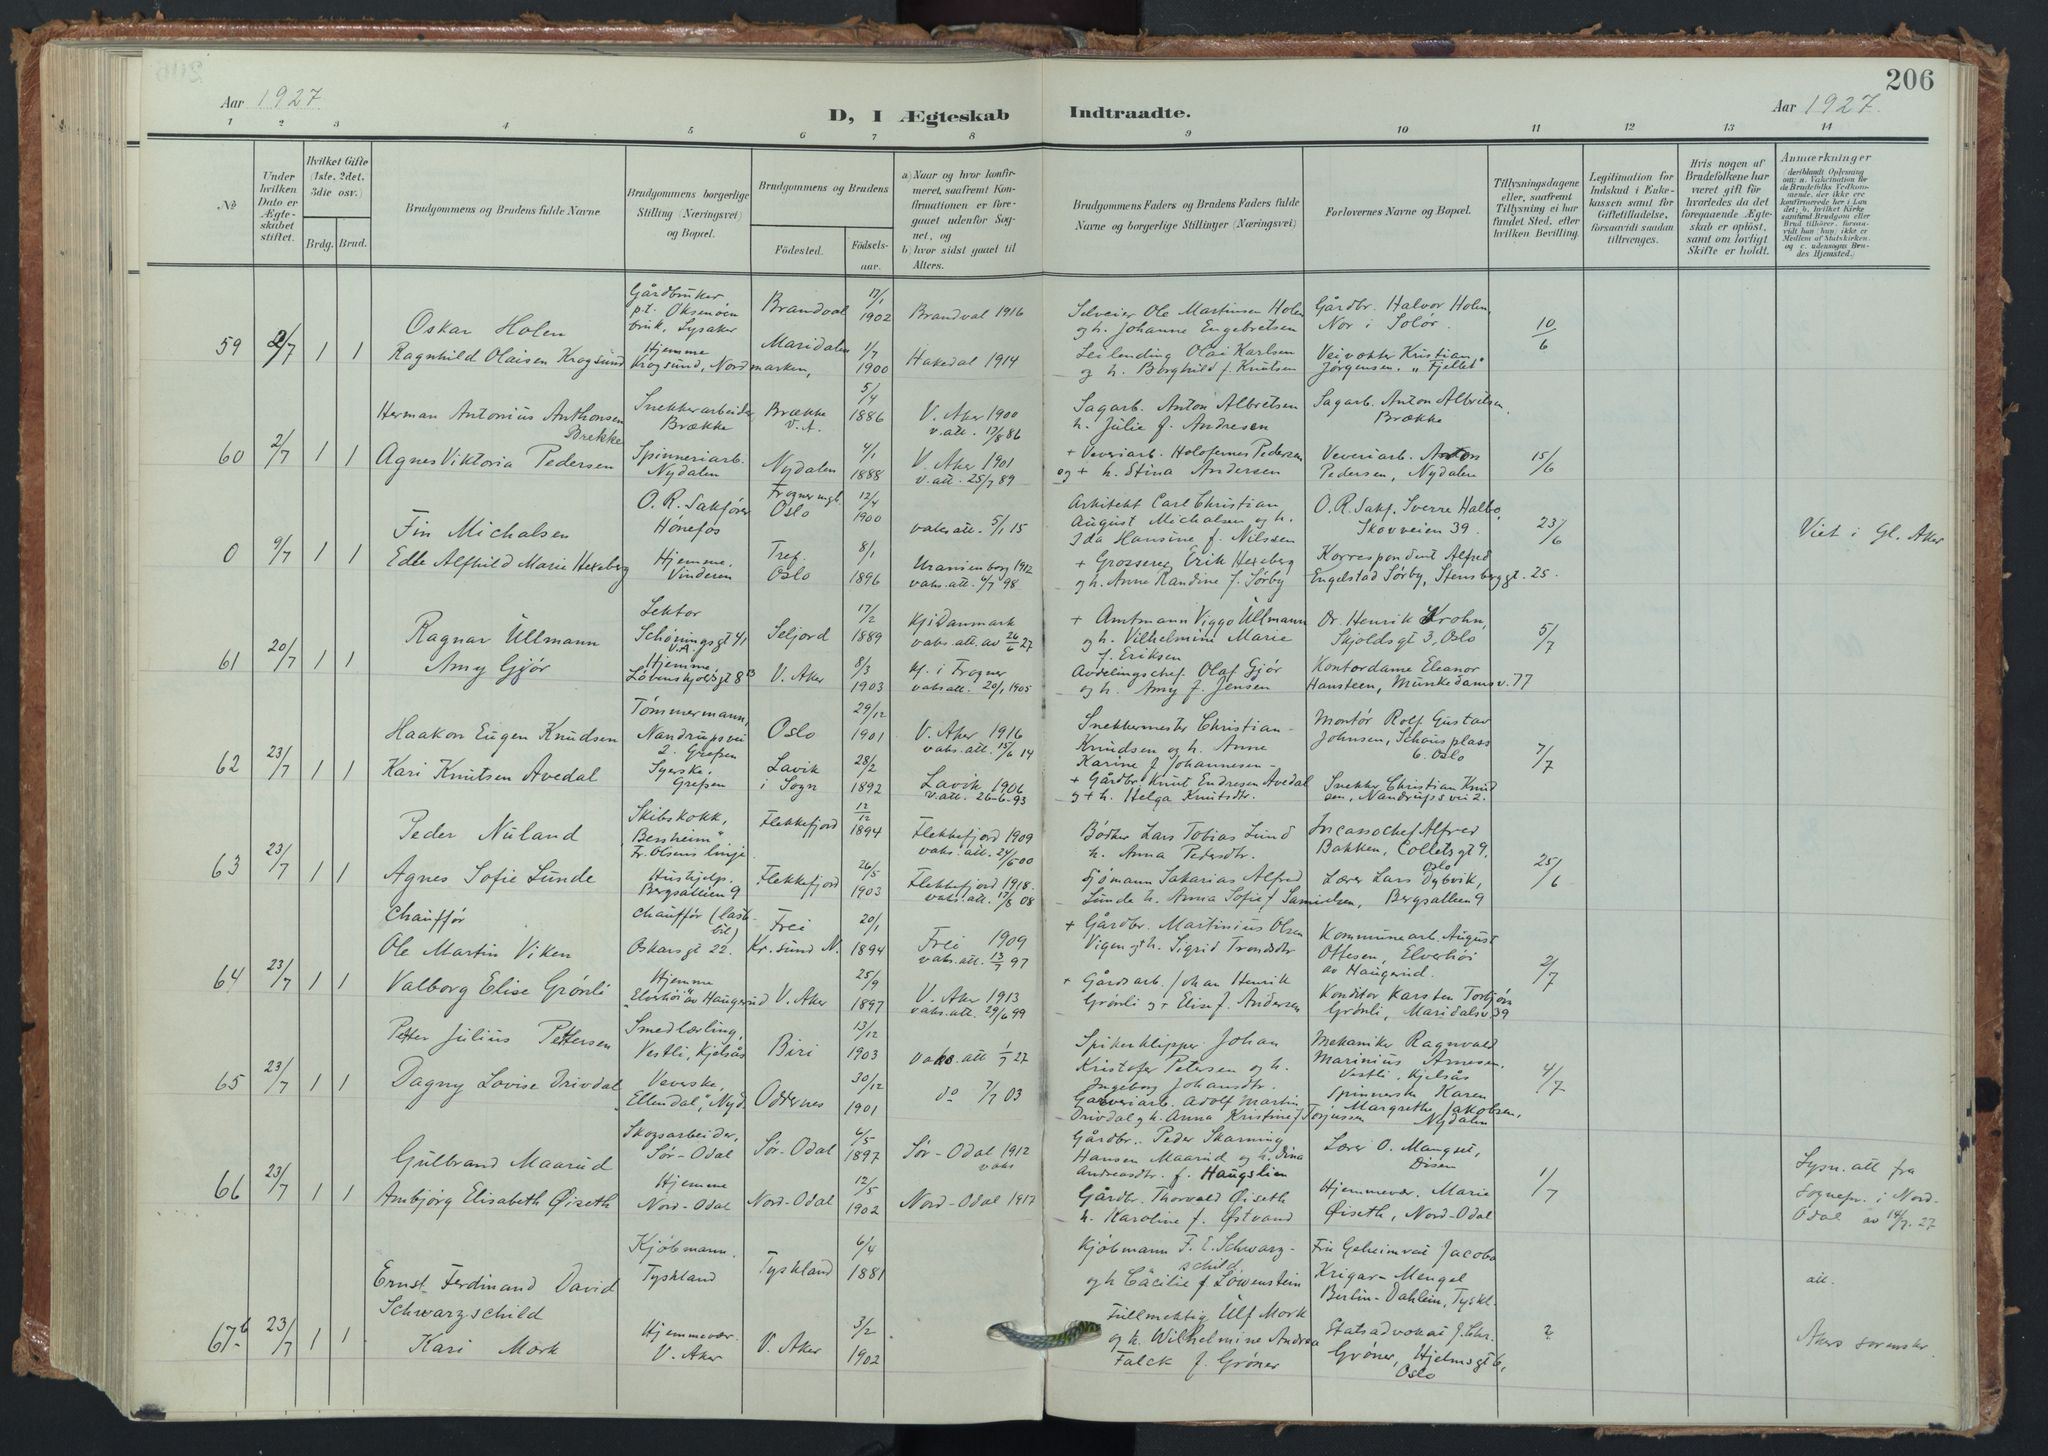 206
Aar 1927
D, I Ægteskab Indtraadte.
Aar 1927.
1 2 3 4 5 6 7 8 9 10 11 12 13 14
No
Under hvilken Dato er Ægteskabet stiftet.
Hvilket Gifte (1ste, 2det, 3die osv.)
Brdg. Brud.
Brudgommens og Brudens fulde Navne.
Brudgommens borgerlige Stilling (Næringsvei) og Bopæl.
Brudgommens og Brudens
Födested.
Födselsaar.
a) Naar og hvor konfirmeret, saafremt Konfirmationen er foregaaet udenfor Sognet, og
b) hvor sidst gaaet til Alters.
Brudgommens Faders og Brudens Faders fulde Navne og borgerlige Stillinger (Næringsvei)
Forlovernes Navne og Bopæl.
Tillysningsdagene eller, saafremt Tillysning ei har fundet Sted, efter hvilken Bevilling.
Legitimation for Indskud i Enkekassen samt for Giftetilladelse, forsaavidt saadan tiltrænges.
Hvis nogen af Brudefolkene har været gift før hvorledes da det foregaaende Ægteskab er opløst, samt om lovligt Skifte er holdt.
Anmærkninger
(deriblandt Oplysning om: a. Vakcination for de Brudefolks Vedkommende, der ikke ere konfirmerede her i Landet; b. hvilket Kirkesamfund Brudgom eller Brud tilhører, forsaavidt han (hun) ikke er Medlem af Statskirken, og c. udensogns Brudes Hjemsted.)
59 2/7 1 1
Oskar Holen
Gårdbruker p.t. Oksenøen bruk, Lysaker
Brandval
17/1 1902
Brandval 1916
Selveier Ole Martinsen Holen og h. Johanne Engebretsen
Gårdbr. Halvor Holen, Nor i Solør.
10/6
Ragnhild Olaisen Krogsund
Hjemme Krogsund, Nordmarken,
Maridalen
1/7 1900
Hakedal 1914
Leilending Olai Karlsen og h. Borghild f. Knutsen
Veivokter Kristian Jørgensen, "Fjellet"
60 2/7 1 1
Herman Antonius Anthonsen Brekke
Snekkerarbeider Brække
Brække V.A.
5/4 1886
V. Aker 1900 v. att. 17/8 86
Sagarb. Anton Albretsen h. Julie f. Andresen
Sagarb. Anton Albretsen, Brække
Agnes Viktoria Pedersen
Spinneriarb. Nydalen
Nydalen
4/1 1888
V. Aker 1901 v. att. 25/7 89
+ Veveriarb. Holofernes Pedersen og + h. Stina Andersen
Veveriarb. Anton Pedersen, Nydalen
15/6
0 9/7 1 1
Fin Michalsen
O. R. Sakfører Hønefos
Frogner mgt. Oslo
12/4 1900
vaks att. 5/1 15
Arkitekt Carl Christian August Michalsen og h. Ida Hansine f. Nilssen
O.R. Sakf. Sverre Halbo, Skovveien 39.
23/6
Viet i Gl. Aker
Edle Alfhild Marie Hexeberg
Hjemme. Vinderen
Tref. Oslo
8/1 1896
Uranienborg 1912 vaks. att. 6/7 98
+ Grosserer Erik Hexeberg og h. Anne Randine f. Sørby
Korrespondent Alfred Engelstad Sørby, Stensberggt. 25.
61 20/7 1 1
Ragnar Ullmann
Lektor Schøningsgt 41 V.A.
Seljord
17/2 1889
Kf i Danmark vaks. att. av 26/6 27
+ Amtmann Viggo Ullmann og h. Vilhelmine Marie f. Eriksen
Dr. Henrik Krohn, Skjoldsgt 3, Oslo
5/7
Amy Gjør
Hjemme, Løvenskioldsgt 8 B
V. Aker
8/3 1903
kf. i Frogner vaks att. 20/1 1905
Avdelingschef Olaf Gjør og h. Amy f. Jensen
Kontordame Eleanor Hansteen, Munkedamsv. 77
62 23/7 1 1
Haakon Eugen Knudsen
Tømmermann, Nandrupsvei 2. Grefsen
Oslo
29/12 1901
V. Aker 1916 vaks. att. 15/6 14
Snekkermester Christian Knudsen og h. Anne Karine f. Johannesen
Montør Rolf Gustav Johnsen, Schous plass 6. Oslo
7/7
Kari Knutsen Avedal
Syerske, Grefsen
Lavik i Sogn
28/2 1892
Lavik 1906 v. att. 26-6-93
+ Gårdbr. Knut Endresen Avedal og + h. Helga Knutsdtr.
Snekker Christian Knudsen, Nandrupsvei 2.
63 23/7 1 1
Peder Nuland
Skibskokk, "Bessheim" Fr. Olsens linje
Flekkefjord
12/12 1894
Flekkefjord 1909 vaks. att. 24/6 00
Bødker Lars Tobias Lund h. Anna Pedersdtr.
Incassochef Alfred Bakken, Colletsgt 9, Oslo
25/6
Agnes Sofie Lunde
Hushjelp. Bergsallien 9
Flekkefjord
26/5 1903
Flekkefjord 1918. vaks. att. 17/8 08
Sjømann Sakarias Alfred Lunde h. Anna Sofie f Samielsen,
Lærer Lars Dybvik, Bergsalleen 9
64 23/7 1 1
Chauffør Ole Martin Viken
Chauffør (lastbil) Oskarsgt 22.
Frei Kr.sund N.
20/1 1894
Frei 1909 vaks. att. 13/7 97
+ Gårdbr. Martinius Olsen Vigen og h. Sigrid Trondsdtr
Kommunearb. August Ottesen, Elverhöi av Haugerud.
2/7
Valborg Elise Grønli
Hjemme "Elverhöi" av Haugerud
V. Aker
25/9 1897
V. Aker 1913 vaks. att. 29/6 99
+ Gårdsarb. Johan Henrik Grønli og + Elise f. Andersen
Konditor Karsten Torbjørn Grønli, Maridalsv. 39
65 23/7 1 1
Petter Julius Pettersen
Smedlærling, Vestli, Kjelsås
Biri
13/12 1903
vaks. att 1/7 27
Spikerklipper Johan Kristofer Petersen og h. Ingeborg Johansdtr.
Mekaniker Ragnvald Marinius Arnesen, Vestli, Kjelsås
4/7
Dagny Lovise Drivdal
Veverske, "Ellendal", Nyd.
Oddernes
30/12 1901
do 7/7 03
Garveriarb. Adolf Martin Drivdal og h. Anna Kristine f Torjussen
Spinnerske Karen Margrethe Jakobsen, Nydalen
66 23/7 1 1
Gulbrand Maarud
Skogsarbeider, Sør-Odal
Sør-Odal
6/5 1897
Sør-Odal 1912 vaks
Gårdbr. Peder Skarning Hansen Maarud og h. Dina Andreasdtr. f. Haugslien
Lærer O. Mangset, Disen
1/7
Lysn. att fra Sognepr. i Nord-Odal av 14/7. 27
Ambjörg Elisabeth Øiseth
Hjemme Nord-Odal
Nord-Odal
12/5 1902
Nord-Odal 1917
Gårdbr. Thorvald Øiseth h. Karoline f. Østvand
Hjemmevær. Marie Øiseth, Nord-Odal
67 b 23/7 1 1
Ernst Ferdinand David Schwarzschild
Kjøbmann. Tyskland
Tyskland
6/4 1881
Kjøbmann F. E. Schwarzschild og h Cäcilie f. Löwenstein
Fru Geheimrat Jacoba Krigar-Mengel Berlin-Dahlem, Tyskl.
att.
Kari Mork
Hjemmevær. V. Aker
V. Aker
3/2 1902
Fullmektig Ulf Mork og h. Wilhelmine Andrea Falck f. Grøner
Statsadvokat J. Chr. Grøner, Hjelmsgt 6, Oslo
2
Akers sorenskr.